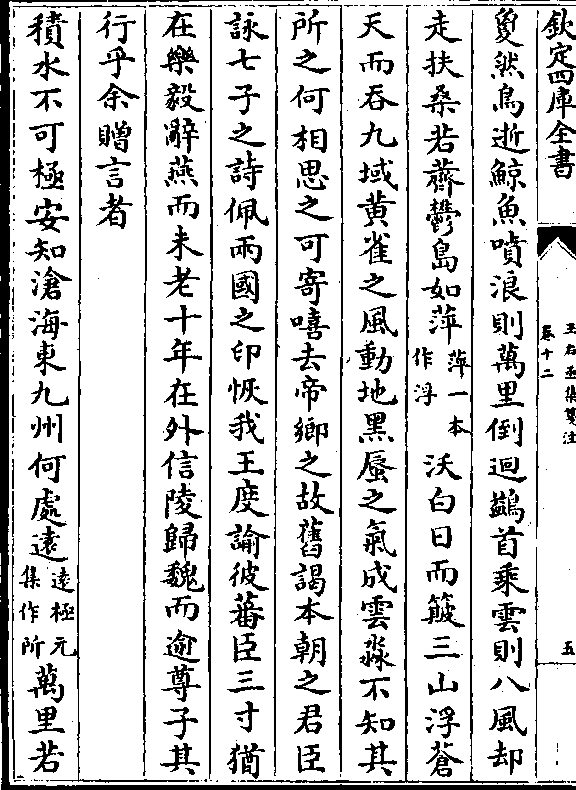 欽定四庫全書
王右丞集箋注
卷十二
五
敻然鳥逝鯨魚噴浪則萬里倒迴鷁首乘雲則八風却
走扶桑若薺鬱島如萍萍一本作浮沃白日而簸三山浮蒼
天而吞九域黄雀之風動地黑蜃之氣成雲淼不知其
所之何相思之可寄嘻去帝鄉之故舊謁本朝之君臣
詠七子之詩佩兩國之印恢我王度諭彼蕃臣三寸猶
在樂毅辭燕而未老十年在外信陵歸魏而逾尊子其
行乎余贈言者
積水不可極安知滄海東九州何處遠遠極元集作所萬里若